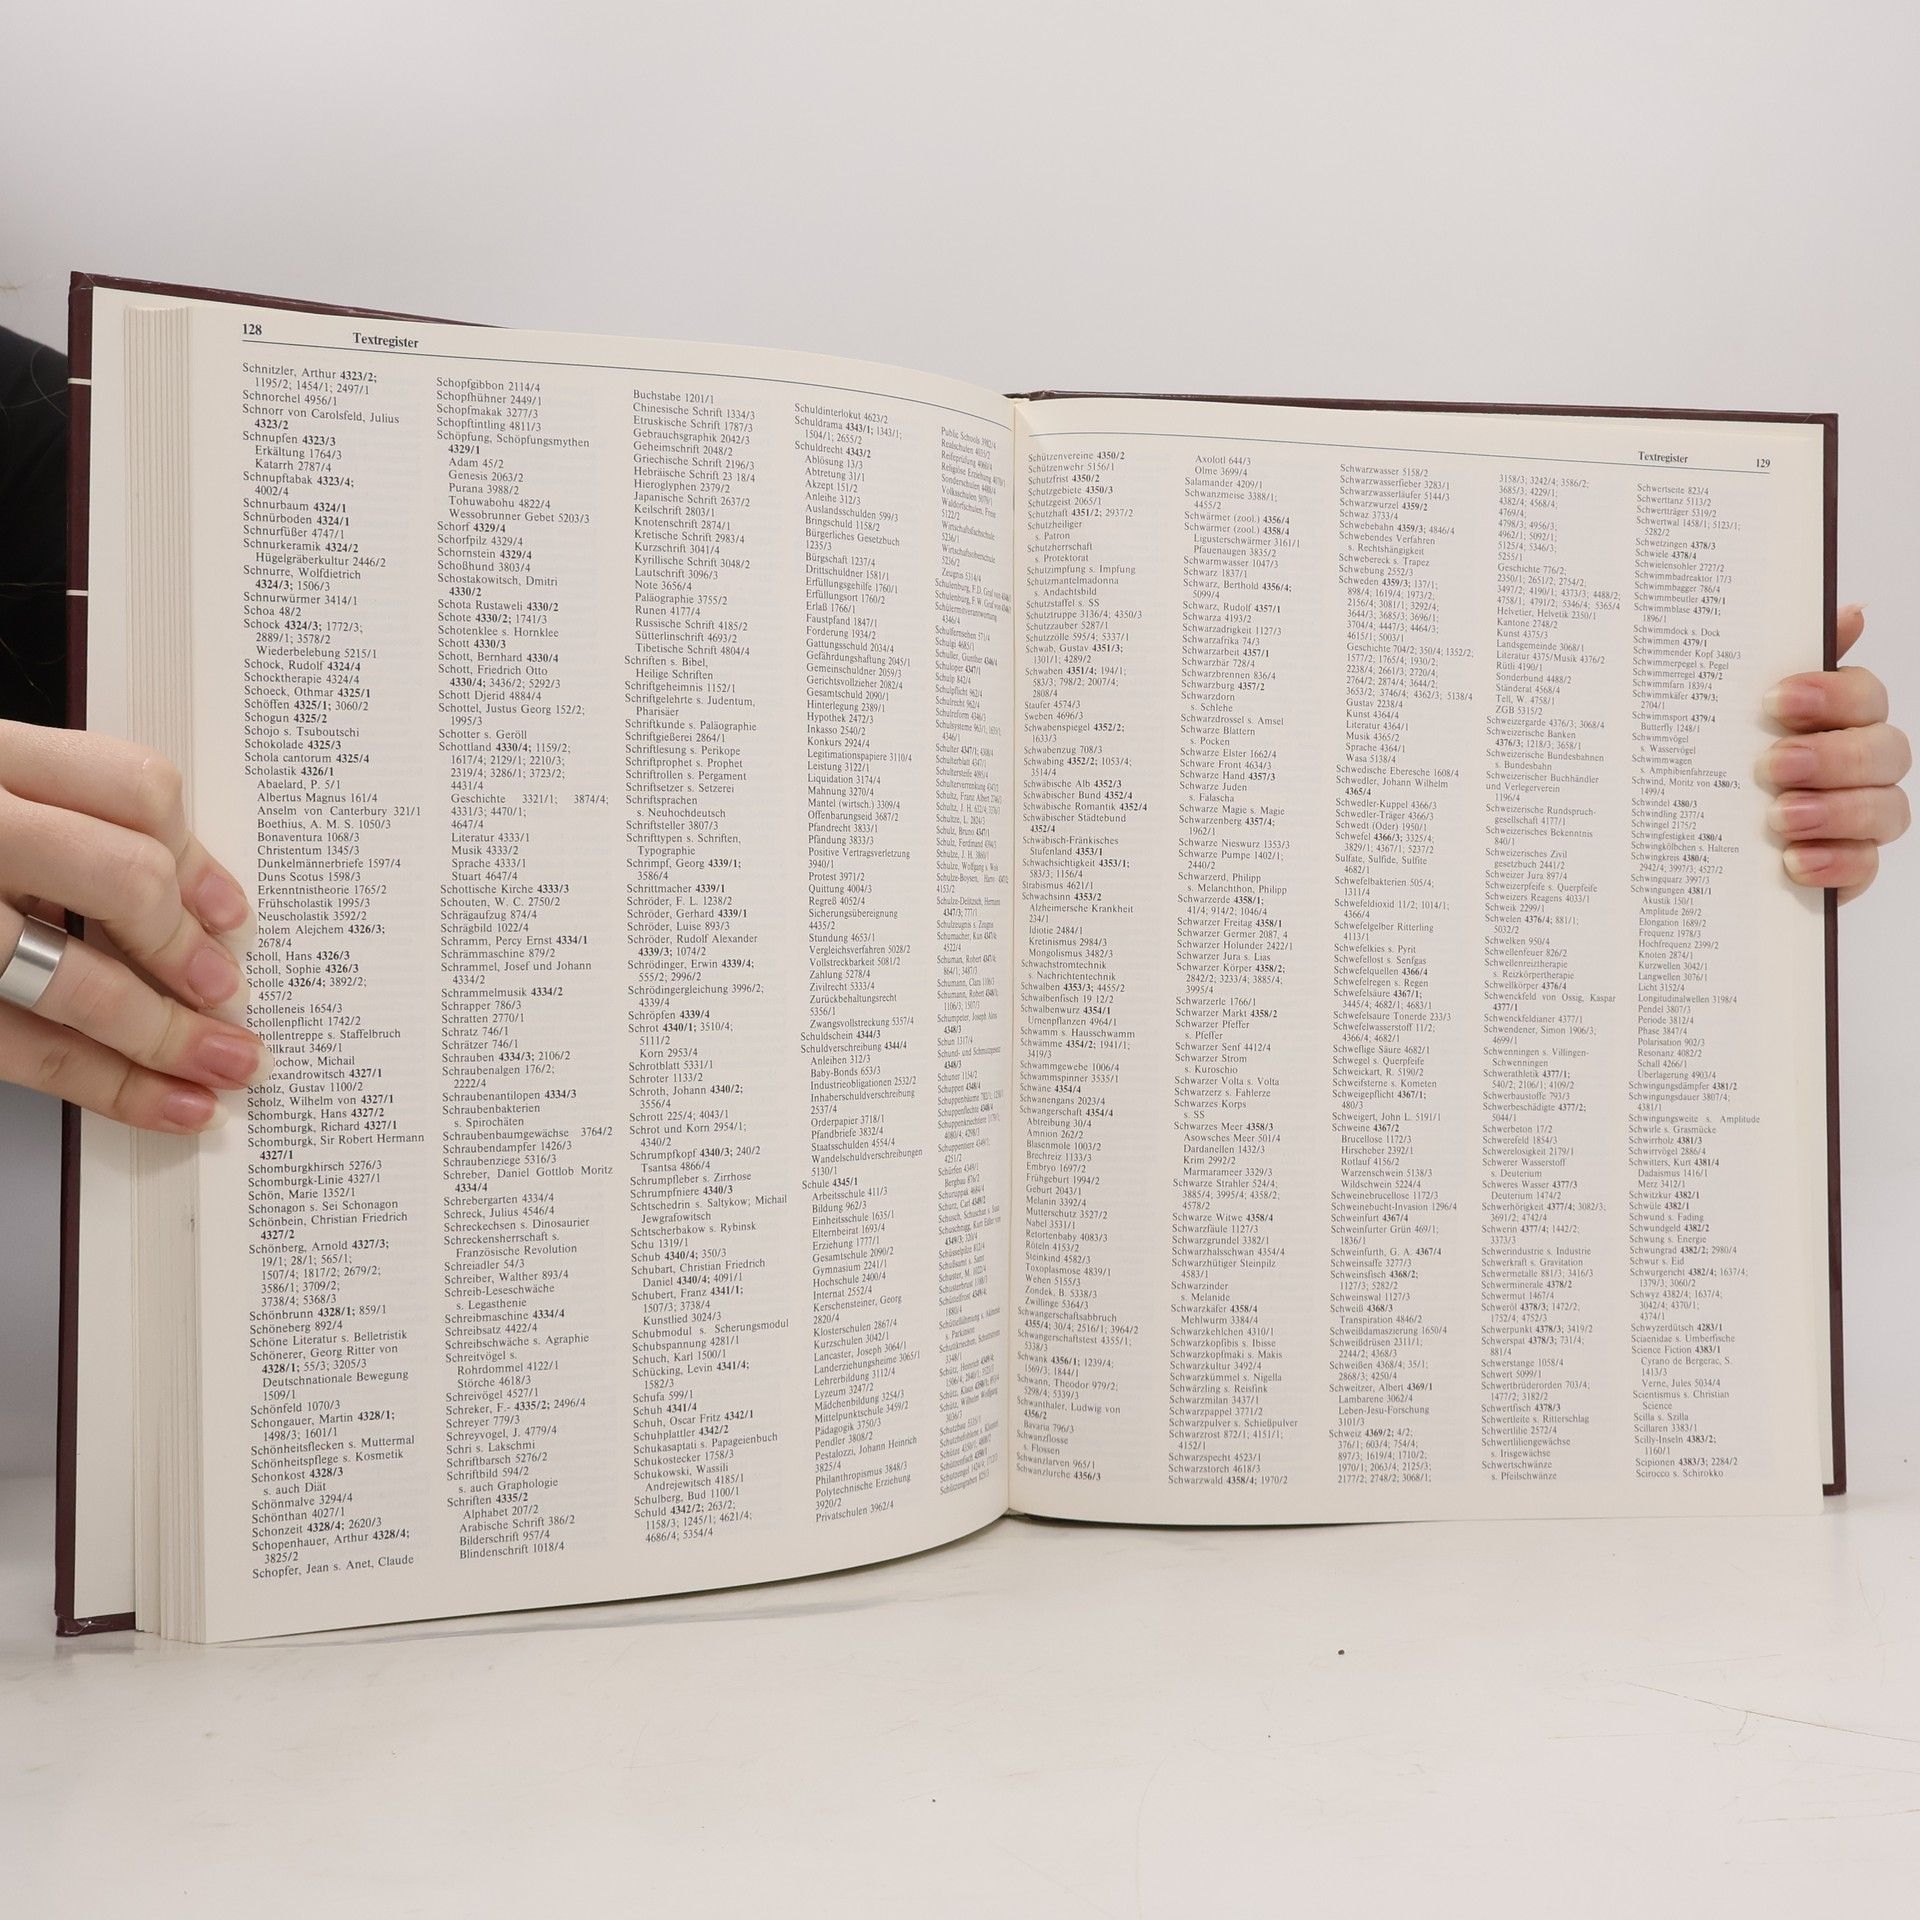 128
Textregister
Schnitzler, Arthur 4323/2;
1195/2; 1454/1; 2497/1
Schnorchel 4956/1
Schnorr von Carolsfeld, Julius
4323/2
Schnupfen 4323/3
Erkältung 1764/3
Katarrh 2787/4
Schnupftabak 4323/4;
4002/4
Schnurbaum 4324/1
Schnürboden 4324/1
Schnurfüßer 4747/1
Schnurkeramik 4324/2
Hügelgräberkultur 2446/2
Schnurre, Wolfdietrich
4324/3; 1506/3
Schnurwürmer 3414/1
Schoa 48/2
Schock 4324/3; 1772/3;
2889/1; 3578/2
Wiederbelebung 5215/1
Schock, Rudolf 4324/4
Schocktherapie 4324/4
Schoeck, Othmar 4325/1
Schöffen 4325/1; 3060/2
Schogun 4325/2
Schojo s. Tsuboutschi
Schokolade 4325/3
Schola cantorum 4325/4
Scholastik 4326/1
Abaelard, P. 5/1
Albertus Magnus 161/4
Anselm von Canterbury 321/1
Boethius, A. M. S. 1050/3
Bonaventura 1068/3
Christentum 1345/3
Dunkelmännerbriefe 1597/4
Duns Scotus 1598/3
Erkenntnistheorie 1765/2
Frühscholastik 1995/3
Neuscholastik 3592/2
holem Alejchem 4326/3;
2678/4
Scholl, Hans 4326/3
Scholl, Sophie 4326/3
Scholle 4326/4; 3892/2;
4557/2
Scholleneis 1654/3
Schollenpflicht 1742/2
hollentreppe s. Staffelbruch
öllkraut 3469/1
lochow, Michail
lexandrowitsch 4327/1
Scholz, Gustav 1100/2
Scholz, Wilhelm von 4327/1
Schomburgk, Hans 4327/2
Schomburgk, Richard 4327/1
Schomburgk, Sir Robert Hermann
4327/1
Schomburgkhirsch 5276/3
Schomburgk-Linie 4327/1
Schön, Marie 1352/1
Schonagon s. Sei Schonagon
Schönbein, Christian Friedrich
4327/2
Schönberg, Arnold 4327/3;
19/1; 28/1; 565/1;
1507/4; 1817/2; 2679/2;
3586/1; 3709/2;
3738/4; 5368/3
Schönbrunn 4328/1; 859/1
Schöneberg 892/4
Schöne Literatur s. Belletristik
Schönerer, Georg Ritter von
4328/1; 55/3; 3205/3
Deutschnationale Bewegung
1509/1
Schönfeld 1070/3
Schongauer, Martin 4328/1;
1498/3; 1601/1
Schönheitsflecken s. Muttermal
Schönheitspflege s. Kosmetik
Schonkost 4328/3
s. auch Diät
Schönmalve 3294/4
Schönthan 4027/1
Schonzeit 4328/4; 2620/3
Schopenhauer, Arthur 4328/4;
3825/2
Schopfer, Jean s. Anet, Claude
Schopfgibbon 2114/4
Schopfhühner 2449/1
Schopfmakak 3277/3
Schopftintling 4811/3
Schöpfung, Schöpfungsmythen
4329/1
Adam 45/2
Genesis 2063/2
Purana 3988/2
Tohuwabohu 4822/4
Wessobrunner Gebet 5203/3
Schorf 4329/4
Schorfpilz 4329/4
Schornstein 4329/4
Schoßhund 3803/4
Schostakowitsch, Dmitri
4330/2
Schota Rustaweli 4330/2
Schote 4330/2; 1741/3
Schotenklee s. Hornklee
Schott 4330/3
Schott, Bernhard 4330/4
Schott, Friedrich Otto
4330/4; 3436/2; 5292/3
Schott Djerid 4884/4
Schottel, Justus Georg 152/2;
1995/3
Schotter s. Geröll
Schottland 4330/4; 1159/2;
1617/4; 2129/1; 2210/3;
2319/4; 3286/1; 3723/2;
4431/4
Geschichte 3321/1; 3874/4;
4331/3; 4470/1;
4647/4
Literatur 4333/1
Musik 4333/2
Sprache 4333/1
Stuart 4647/4
Schottische Kirche 4333/3
Schouten, W. C. 2750/2
Schrägaufzug 874/4
Schrägbild 1022/4
Schramm, Percy Ernst 4334/1
Schrämmaschine 879/2
Schrammel, Josef und Johann
4334/2
Schrammelmusik 4334/2
Schrapper 786/3
Schratten 2770/1
Schratz 746/1
Schrätzer 746/1
Schrauben 4334/3; 2106/2
Schraubenalgen 176/2;
2222/4
Schraubenantilopen 4334/3
Schraubenbakterien
s. Spirochäten
Schraubenbaumgewächse 3764/2
Schraubendampfer 1426/3
Schraubenziege 5316/3
Schreber, Daniel Gottlob Moritz
4334/4
Schrebergarten 4334/4
Schreck, Julius 4546/4
Schreckechsen s. Dinosaurier
Schreckensherrschaft s.
Französische Revolution
Schreiadler 54/3
Schreiber, Walther 893/4
Schreib-Leseschwäche
s. Legasthenie
Schreibmaschine 4334/4
Schreibsatz 4422/4
Schreibschwäche s. Agraphie
Schreitvögel s.
Rohrdommel 4122/1
Störche 4618/3
Schreivögel 4527/1
Schreker, F.- 4335/2; 2496/4
Schreyer 779/3
Schreyvogel, J. 4779/4
Schri s. Lakschmi
Schriftbarsch 5276/2
Schriftbild 594/2
s. auch Graphologie
Schriften 4335/2
Alphabet 207/2
Arabische Schrift 386/2
Bilderschrift 957/4
Blindenschrift 1018/4
Buchstabe 1201/1
Chinesische Schrift 1334/3
Etruskische Schrift 1787/3
Gebrauchsgraphik 2042/3
Geheimschrift 2048/2
Griechische Schrift 2196/3
Hebräische Schrift 23 18/4
Hieroglyphen 2379/2
Japanische Schrift 2637/2
Keilschrift 2803/1
Knotenschrift 2874/1
Kretische Schrift 2983/4
Kurzschrift 3041/4
Kyrillische Schrift 3048/2
Lautschrift 3096/3
Note 3656/4
Paläographie 3755/2
Runen 4177/4
Russische Schrift 4185/2
Sütterlinschrift 4693/2
Tibetische Schrift 4804/4
Schriften s. Bibel,
Heilige Schriften
Schriftgeheimnis 1152/1
Schriftgelehrte s. Judentum,
Pharisäer
Schriftkunde s. Paläographie
Schriftgießerei 2864/1
Schriftlesung s. Perikope
Schriftprophet s. Prophet
Schriftrollen s. Pergament
Schriftsetzer s. Setzerei
Schriftsprachen
s. Neuhochdeutsch
Schriftsteller 3807/3
Schrifttypen s. Schriften,
Typographie
Schrimpf, Georg 4339/1;
3586/4
Schrittmacher 4339/1
Schröder, F. L. 1238/2
Schröder, Gerhard 4339/1
Schröder, Luise 893/3
Schröder, Rudolf Alexander
4339/3; 1074/2
Schrödinger, Erwin 4339/4;
555/2; 2996/2
Schrödingergleichung 3996/2;
4339/4
Schröpfen 4339/4
Schrot 4340/1; 3510/4;
5111/2
Korn 2953/4
Schrotblatt 5331/1
Schroter 1133/2
Schroth, Johann 4340/2;
3556/4
Schrott 225/4; 4043/1
Schrot und Korn 2954/1;
4340/2
Schrumpfkopf 4340/3; 240/2
Tsantsa 4866/4
Schrumpfleber s. Zirrhose
Schrumpfniere 4340/3
Schtschedrin s. Saltykow, Michail
Jewgrafowitsch
Schtscherbakow s. Rybinsk
Schu 1319/1
Schub 4340/4; 350/3
Schubart, Christian Friedrich
Daniel 4340/4; 4091/1
Schubert, Franz 4341/1;
1507/3; 3738/4
Kunstlied 3024/3
Schubmodul s. Scherungsmodul
Schubspannung 4281/1
Schuch, Karl 1500/1
Schücking, Levin 4341/4;
1582/3
Schufa 599/1
Schuh 4341/4
Schuh, Oscar Fritz 4342/1
Schuhplattler 4342/2
Schukasaptati s. Papageienbuch
Schukostecker 1758/3
Schukowski, Wassili
Andrejewitsch 4185/1
Schulberg, Bud 1100/1
Schuld 4342/2; 263/2;
1158/3; 1245/1; 4621/4;
4686/4; 5354/4
Schuldinterlokut 4623/2
Schuldrama 4343/1; 1343/1;
1504/1; 2655/2
Schuldrecht 4343/2
Ablösung 13/3
Abtretung 31/1
Akzept 151/2
Anleihe 312/3
Auslandsschulden 599/3
Bringschuld 1158/2
Bürgerliches Gesetzbuch
1235/3
Bürgschaft 1237/4
Drittschuldner 1581/1
Erfüllungsgehilfe 1760/1
Erfüllungsort 1760/2
Erlaß 1766/1
Faustpfand 1847/1
Forderung 1934/2
Gattungsschuld 2034/4
Gefährdungshaftung 2045/1
Gemeinschuldner 2059/3
Gerichtsvollzieher 2082/4
Gesamtschuld 2090/1
Hinterlegung 2389/1
Hypothek 2472/3
Inkasso 2540/2
Konkurs 2924/4
Legitimationspapiere 3110/4
Leistung 3122/1
Liquidation 3174/4
Mahnung 3270/4
Mantel (wirtsch.) 3309/4
Offenbarungseid 3687/2
Pfandrecht 3833/1
Pfändung 3833/3
Positive Vertragsverletzung
3940/1
Protest 3971/2
Quittung 4004/3
Regreß 4052/4
Sicherungsübereignung
4435/2
Stundung 4653/1
Vergleichsverfahren 5028/2
Vollstreckbarkeit 5081/2
Zahlung 5278/4
Zivilrecht 5333/4
Zurückbehaltungsrecht
5356/1
Zwangsvollstreckung 5357/4
Schuldschein 4344/3
Schuldverschreibung 4344/4
Anleihen 312/3
Baby-Bonds 653/3
Industrieobligationen 2532/2
Inhaberschuldverschreibung
2537/4
Orderpapier 3718/1
Pfandbriefe 3832/4
Staatsschulden 4554/4
Wandelschuldverschreibungen
5130/1
Schule 4345/1
Arbeitsschule 411/3
Bildung 962/3
Einheitsschule 1635/1
Elternbeirat 1693/4
Erziehung 1777/1
Gesamtschule 2090/2
Gymnasium 2241/1
Hochschule 2400/4
Internat 2552/4
Kerschensteiner, Georg
2820/4
Klosterschulen 2867/4
Kurzschulen 3042/1
Lancaster, Joseph 3064/1
Landerziehungsheime 3065/1
Lehrerbildung 3112/4
Lyzeum 3247/2
Mädchenbildung 3254/3
Mittelpunktschule 3459/2
Pädagogik 3750/3
Pendler 3808/2
Pestalozzi, Johann Heinrich
3825/4
Philanthropismus 3848/3
Polytechnische Erziehung
3920/2
Privatschulen 3962/4
Public Schools 3982/4
Realschulen 4035/2
Textregister
129
Schützenvereine 4350/2
Schützenwehr 5156/1
Schutzfrist 4350/2
Schutzgebiete 4350/3
Schutzgeist 2065/1
Schutzhaft 4351/2; 2937/2
Schutzheiliger
s. Patron
Schutzherrschaft
s. Protektorat
Schutzimpfung s. Impfung
Schutzmantelmadonna
s. Andachtsbild
Schutzstaffel s. SS
Schutztruppe 3136/4; 4350/3
Schutzzauber 5287/1
Schutzzölle 595/4; 5337/1
Schwab, Gustav 4351/3;
1301/1; 4289/2
Schwaben 4351/4; 194/1;
583/3; 798/2; 2007/4;
2808/4
Staufer 4574/3
Sweben 4696/3
Schwabenspiegel 4352/2;
1633/3
Schwabenzug 708/3
Schwabing 4352/2; 1053/4;
3514/4
Schwäbische Alb 4352/3
Schwäbischer Bund 4352/4
Schwäbische Romantik 4352/4
Schwäbischer Städtebund
4352/4
Schwäbisch-Fränkisches
Stufenland 4353/1
Schwachsichtigkeit 4353/1;
583/3; 1156/4
Strabismus 4621/1
Schwachsinn 4353/2
Alzheimersche Krankheit
234/1
Idiotie 2484/1
Kretinismus 2984/3
Mongolismus 3482/3
Schwachstromtechnik
s. Nachrichtentechnik
Schwalben 4353/3; 4455/2
Schwalbenfisch 19 12/2
Schwalbenwurz 4354/1
Urnenpflanzen 4964/1
Schwamm s. Hausschwamm
Schwämme 4354/2; 1941/1;
3419/3
Schwammgewebe 1006/4
Schwammspinner 3535/1
Schwäne 4354/4
Schwanengans 2023/4
Schwangerschaft 4354/4
Abtreibung 30/4
Amnion 262/2
Blasenmole 1003/2
Brechreiz 1133/3
Embryo 1697/2
Frühgeburt 1994/2
Geburt 2043/1
Melanin 3392/4
Mutterschutz 3527/2
Nabel 3531/1
Retortenbaby 4083/3
Röteln 4153/2
Steinkind 4582/3
Toxoplasmose 4839/1
Wehen 5155/3
Zondek, B. 5338/3
Zwillinge 5364/3
Schwangerschaftsabbruch
4355/4; 30/4; 2516/1; 3964/2
Schwangerschaftstest 4355/1;
5338/3
Schwank 4356/1; 1239/4;
1569/3; 1844/1
Schwann, Theodor 979/2;
5298/4; 5339/3
Schwanthaler, Ludwig von
4356/2
Bavaria 796/3
Schwanzflosse
s. Flossen
Schwanzlarven 965/1
Schwanzlurche 4356/3
Axolotl 644/3
Olme 3699/4
Salamander 4209/1
Schwanzmeise 3388/1;
4455/2
Schwärmer (zool.) 4356/4
Schwärmer (zool.) 4358/4
Ligusterschwärmer 3161/1
Pfauenaugen 3835/2
Schwarmwasser 1047/3
Schwarz 1837/1
Schwarz, Berthold 4356/4;
5099/4
Schwarz, Rudolf 4357/1
Schwarza 4193/2
Schwarzadrigkeit 1127/3
Schwarzafrika 74/3
Schwarzarbeit 4357/1
Schwarzbär 728/4
Schwarzbrennen 836/4
Schwarzburg 4357/2
Schwarzdorn
s. Schlehe
Schwarzdrossel s. Amsel
Schwarze Blattern
s. Pocken
Schwarze Elster 1662/4
Schware Front 4634/3
Schwarze Hand 4357/3
Schwarze Juden
s. Falascha
Schwarze Magie s. Magie
Schwarzenberg 4357/4;
1962/1
Schwarze Nieswurz 1353/3
Schwarze Pumpe 1402/1;
2440/2
Schwarzerd, Philipp
s. Melanchthon, Philipp
Schwarzerde 4358/1;
41/4; 914/2; 1046/4
Schwarzer Freitag 4358/1
Schwarzer Germer 2087. 4
Schwarzer Holunder 2422/1
Schwarzer Jura s. Lias
Schwarzer Körper 4358/2;
2842/2; 3233/4; 3885/4;
3995/4
Schwarzerle 1766/1
Schwarzer Markt 4358/2
Schwarzer Pfeffer
s. Pfeffer
Schwarzer Senf 4412/4
Schwarzer Strom
s. Kuroschio
Schwarzer Volta s. Volta
Schwarzerz s. Fahlerze
Schwarzes Korps
s. SS
Schwarzes Meer 4358/3
Asowsches Meer 501/4
Dardanellen 1432/3
Krim 2992/2
Marmarameer 3329/3
Schwarze Strahler 524/4;
3885/4; 3995/4; 4358/2;
4578/2
Schwarze Witwe 4358/4
Schwarzfäule 1127/3
Schwarzgrundel 3382/1
Schwarzhalsschwan 4354/4
Schwarzhütiger Steinpilz
4583/1
Schwarzinder
s. Melanide
Schwarzkäfer 4358/4
Mehlwurm 3384/4
Schwarzkehlchen 4310/1
Schwarzkopfibis s. Ibisse
Schwarzkopfmaki s. Makis
Schwarzkultur 3492/4
Schwarzkümmel s. Nigella
Schwärzling s. Reisfink
Schwarzmilan 3437/1
Schwarzpappel 3771/2
Schwarzpulver s. Schießpulver
Schwarzrost 872/1; 4151/1;
4152/1
Schwarzspecht 4523/1
Schwarzstorch 4618/3
Schwarzwald 4358/4; 1970/2
Schwarzwasser 5158/2
Schwarzwasserfieber 3283/1
Schwarzwasserläufer 5144/3
Schwarzwurzel 4359/2
Schwaz 3733/4
Schwebebahn 4359/3; 4846/4
Schwebendes Verfahren
s. Rechtshängigkeit
Schwebereck s. Trapez
Schwebung 2552/3
Schweden 4359/3; 137/1;
898/4; 1619/4; 1973/2;
2156/4; 3081/1; 3292/4;
3644/3; 3685/3; 3696/1;
3704/4; 4447/3; 4464/3;
4615/1; 5003/1
Geschichte 704/2; 350/4; 1352/2;
1577/2; 1765/4; 1930/2;
2238/4; 2661/3; 2720/4;
2764/2; 2874/4; 3644/2;
3653/2; 3746/4; 4362/3; 5138/4
Gustav 2238/4
Kunst 4364/4
Literatur 4364/1
Musik 4365/2
Sprache 4364/1
Wasa 5138/4
Schwedische Eberesche 1608/4
Schwedler, Johann Wilhelm
4365/4
Schwedler-Kuppel 4366/3
Schwedler-Träger 4366/3
Schwedt (Oder) 1950/1
Schwefel 4366/3; 3325/4;
3829/1; 4367/1; 5237/2
Sulfate, Sulfide, Sulfite
4682/1
Schwefelbakterien 505/4;
1311/4
Schwefeldioxid 11/2; 1014/1;
4366/4
Schwefelgelber Ritterling
4113/1
Schwefelkies s. Pyrit
Schwefellost s. Senfgas
Schwefelquellen 4366/4
Schwefelregen s. Regen
Schwefelsäure 4367/1;
3445/4; 4682/1; 4683/1
Schwefelsaure Tonerde 233/3
Schwefelwasserstoff 11/2;
4366/4; 4682/1
Schweflige Säure 4682/1
Schwegel s. Querpfeife
Schweickart, R. 5190/2
Schweifsterne s. Kometen
Schweigepflicht 4367/1;
480/3
Schweigert, John L. 5191/1
Schweine 4367/2
Brucellose 1172/3
Hirscheber 2392/1
Rotlauf 4156/2
Warzenschwein 5138/3
Wildschwein 5224/4
Schweinebrucellose 1172/3
Schweinebucht-Invasion 1296/4
Schweinfurt 4367/4
Schweinfurter Grün 469/1;
1836/1
Schweinfurth, G. A. 4367/4
Schweinsaffe 3277/3
Schweinsfisch 4368/2;
1127/3; 5282/2
Schweinswal 1127/3
Schweiß 4368/3
Transpiration 4846/2
Schweißdamaszierung 1650/4
Schweißdrüsen 2311/1;
2244/2; 4368/3
Schweißen 4368/4; 35/1;
2868/3; 4250/4
Schweitzer, Albert 4369/1
Lambarene 3062/4
Leben-Jesu-Forschung
3101/3
Schweiz 4369/2; 4/2;
376/1; 603/4; 754/4;
897/3; 1619/4; 1710/2;
1970/1; 2063/4; 2125/3;
2177/2; 2748/2; 3068/1;
3158/3; 3242/4; 3586/2;
3685/3; 4229/1;
4382/4; 4568/4;
4769/4;
4798/3; 4956/3;
4962/1; 5092/1;
5125/4; 5346/3;
5255/1
Geschichte 776/2;
2350/1; 2651/2; 2754/2;
3497/2; 4190/1; 4373/3; 4488/2;
4758/1; 4791/2; 5346/4; 5365/4
Helvetier, Helvetik 2350/1
Kantone 2748/2
Kunst 4375/3
Landsgemeinde 3068/1
Literatur 4375/Musik 4376/2
Rütli 4190/1
Sonderbund 4488/2
Ständerat 4568/4
Tell, W. 4758/1
ZGB 5315/2
Schweizergarde 4376/3; 3068/4
Schweizerische Banken
4376/3; 1218/3; 3658/1
Schweizerische Bundesbahnen
s. Bundesbahn
Schweizerischer Buchhändler
und Verlegerverein
1196/4
Schweizerische Rundspruch-
gesellschaft 4177/1
Schweizerisches Bekenntnis
840/1
Schweizerisches Zivil
gesetzbuch 2441/2
Schweizer Jura 897/4
Schweizerpfeife s. Querpfeife
Schweizers Reagens 4033/1
Schweik 2299/1
Schwelen 4376/4; 881/1;
5032/2
Schwelken 950/4
Schwellenfeuer 826/2
Schwellenreiztherapie
s. Reizkörpertherapie
Schwellkörper 4376/4
Schwenckfeld von Ossig, Kaspar
4377/1
Schwenckfeldianer 4377/1
Schwendener, Simon 1906/3;
4699/1
Schwenningen s. Villingen-
Schwenningen
Schwerathletik 4377/1;
540/2; 2106/1; 4109/2
Schwerbaustoffe 793/3
Schwerbeschädigte 4377/2;
5044/1
Schwerbeton 17/2
Schwerefeld 1854/3
Schwerelosigkeit 2179/1
Schwerer Wasserstoff
s. Deuterium
Schweres Wasser 4377/3
Deuterium 1474/2
Schwerhörigkeit 4377/4; 3082/3;
3691/2; 4742/4
Schwerin 4377/4; 1442/2;
3373/3
Schwerindustrie s. Industrie
Schwerkraft s. Gravitation
Schwermetalle 881/3; 3416/3
Schwerminerale 4378/2
Schwermut 1467/4
Schweröl 4378/3; 1472/2;
1752/4; 4752/3
Schwerpunkt 4378/3; 3419/2
Schwerspat 4378/3; 731/4;
881/4
Schwerstange 1058/4
Schwert 5099/1
Schwertbrüderorden 703/4;
1477/2; 3182/2
Schwertfisch 4378/3
Schwertleite s. Ritterschlag
Schwertlilie 2572/4
Schwertliliengewächse
s. Irisgewächse
Schwertschwänze
s. Pfeilschwänze
Schwertseite 823/4
Schwerttanz 5113/2
Schwertträger 5319/2
Schwertwal 1458/1; 5123/1;
5282/2
Schwetzingen 4378/3
Schwiele 4378/4
Schwielensohler 2727/2
Schwimmbadreaktor 17/3
Schwimmbagger 786/4
Schwimmbeutler 4379/1
Schwimmblase 4379/1;
1896/1
Schwimmdock s. Dock
Schwimmen 4379/1
Schwimmender Kopf 3480/3
Schwimmerpegel s. Pegel
Schwimmerregel 4379/2
Schwimmfarn 1839/4
Schwimmkäfer 4379/3;
2704/1
Schwimmsport 4379/4
Butterfly 1248/1
Schwimmvögel
s. Wasservögel
Schwimmwagen
s. Amphibienfahrzeuge
Schwind, Moritz von 4380/3;
1499/4
Schwindel 4380/3
Schwindling 2377/4
Schwingel 2175/2
Schwingfestigkeit 4380/4
Schwingkölbchen s. Halteren
Schwingkreis 4380/4;
2942/4; 3997/3; 4527/2
Schwingquarz 3997/3
Schwingungen 4381/1
Akustik 150/1
Amplitude 269/2
Elongation 1689/2
Frequenz 1978/3
Hochfrequenz 2399/2
Knoten 2874/1
Kurzwellen 3042/1
Langwellen 3076/1
Licht 3152/4
Longitudinalwellen 3198/4
Pendel 3807/3
Periode 3812/4
Phase 3847/4
Polarisation 902/3
Resonanz 4082/2
Schall 4266/1
Überlagerung 4903/4
Schwingungsdämpfer 4381/2
Schwingungsdauer 3807/4;
4381/1
Schwingungsweite s. Amplitude
Schwirle s. Grasmücke
Schwirrholz 4381/3
Schwirrvögel 2886/4
Schwitters, Kurt 4381/4
Dadaismus 1416/1
Merz 3412/1
Schwitzkur 4382/1
Schwüle 4382/1
Schwund s. Fading
Schwundgeld 4382/2
Schwung s. Energie
Schwungrad 4382/2; 2980/4
Schwur s. Eid
Schwurgericht 4382/4; 1637/4;
1379/3; 3060/2
Schwyz 4382/4; 1637/4;
3042/4; 4370/1;
4374/1
Schwyzerdütsch 4283/1
Sciaenidae s. Umberfische
Science Fiction 4383/1
Cyrano de Bergerac, S.
1413/3
Verne, Jules 5034/4
Scientismus s. Christian
Science
Scilla s. Szilla
Scillaren 3383/1
Scilly-Inseln 4383/2;
1160/1
Scipionen 4383/3; 2284/2
Scirocco s. Schirokko